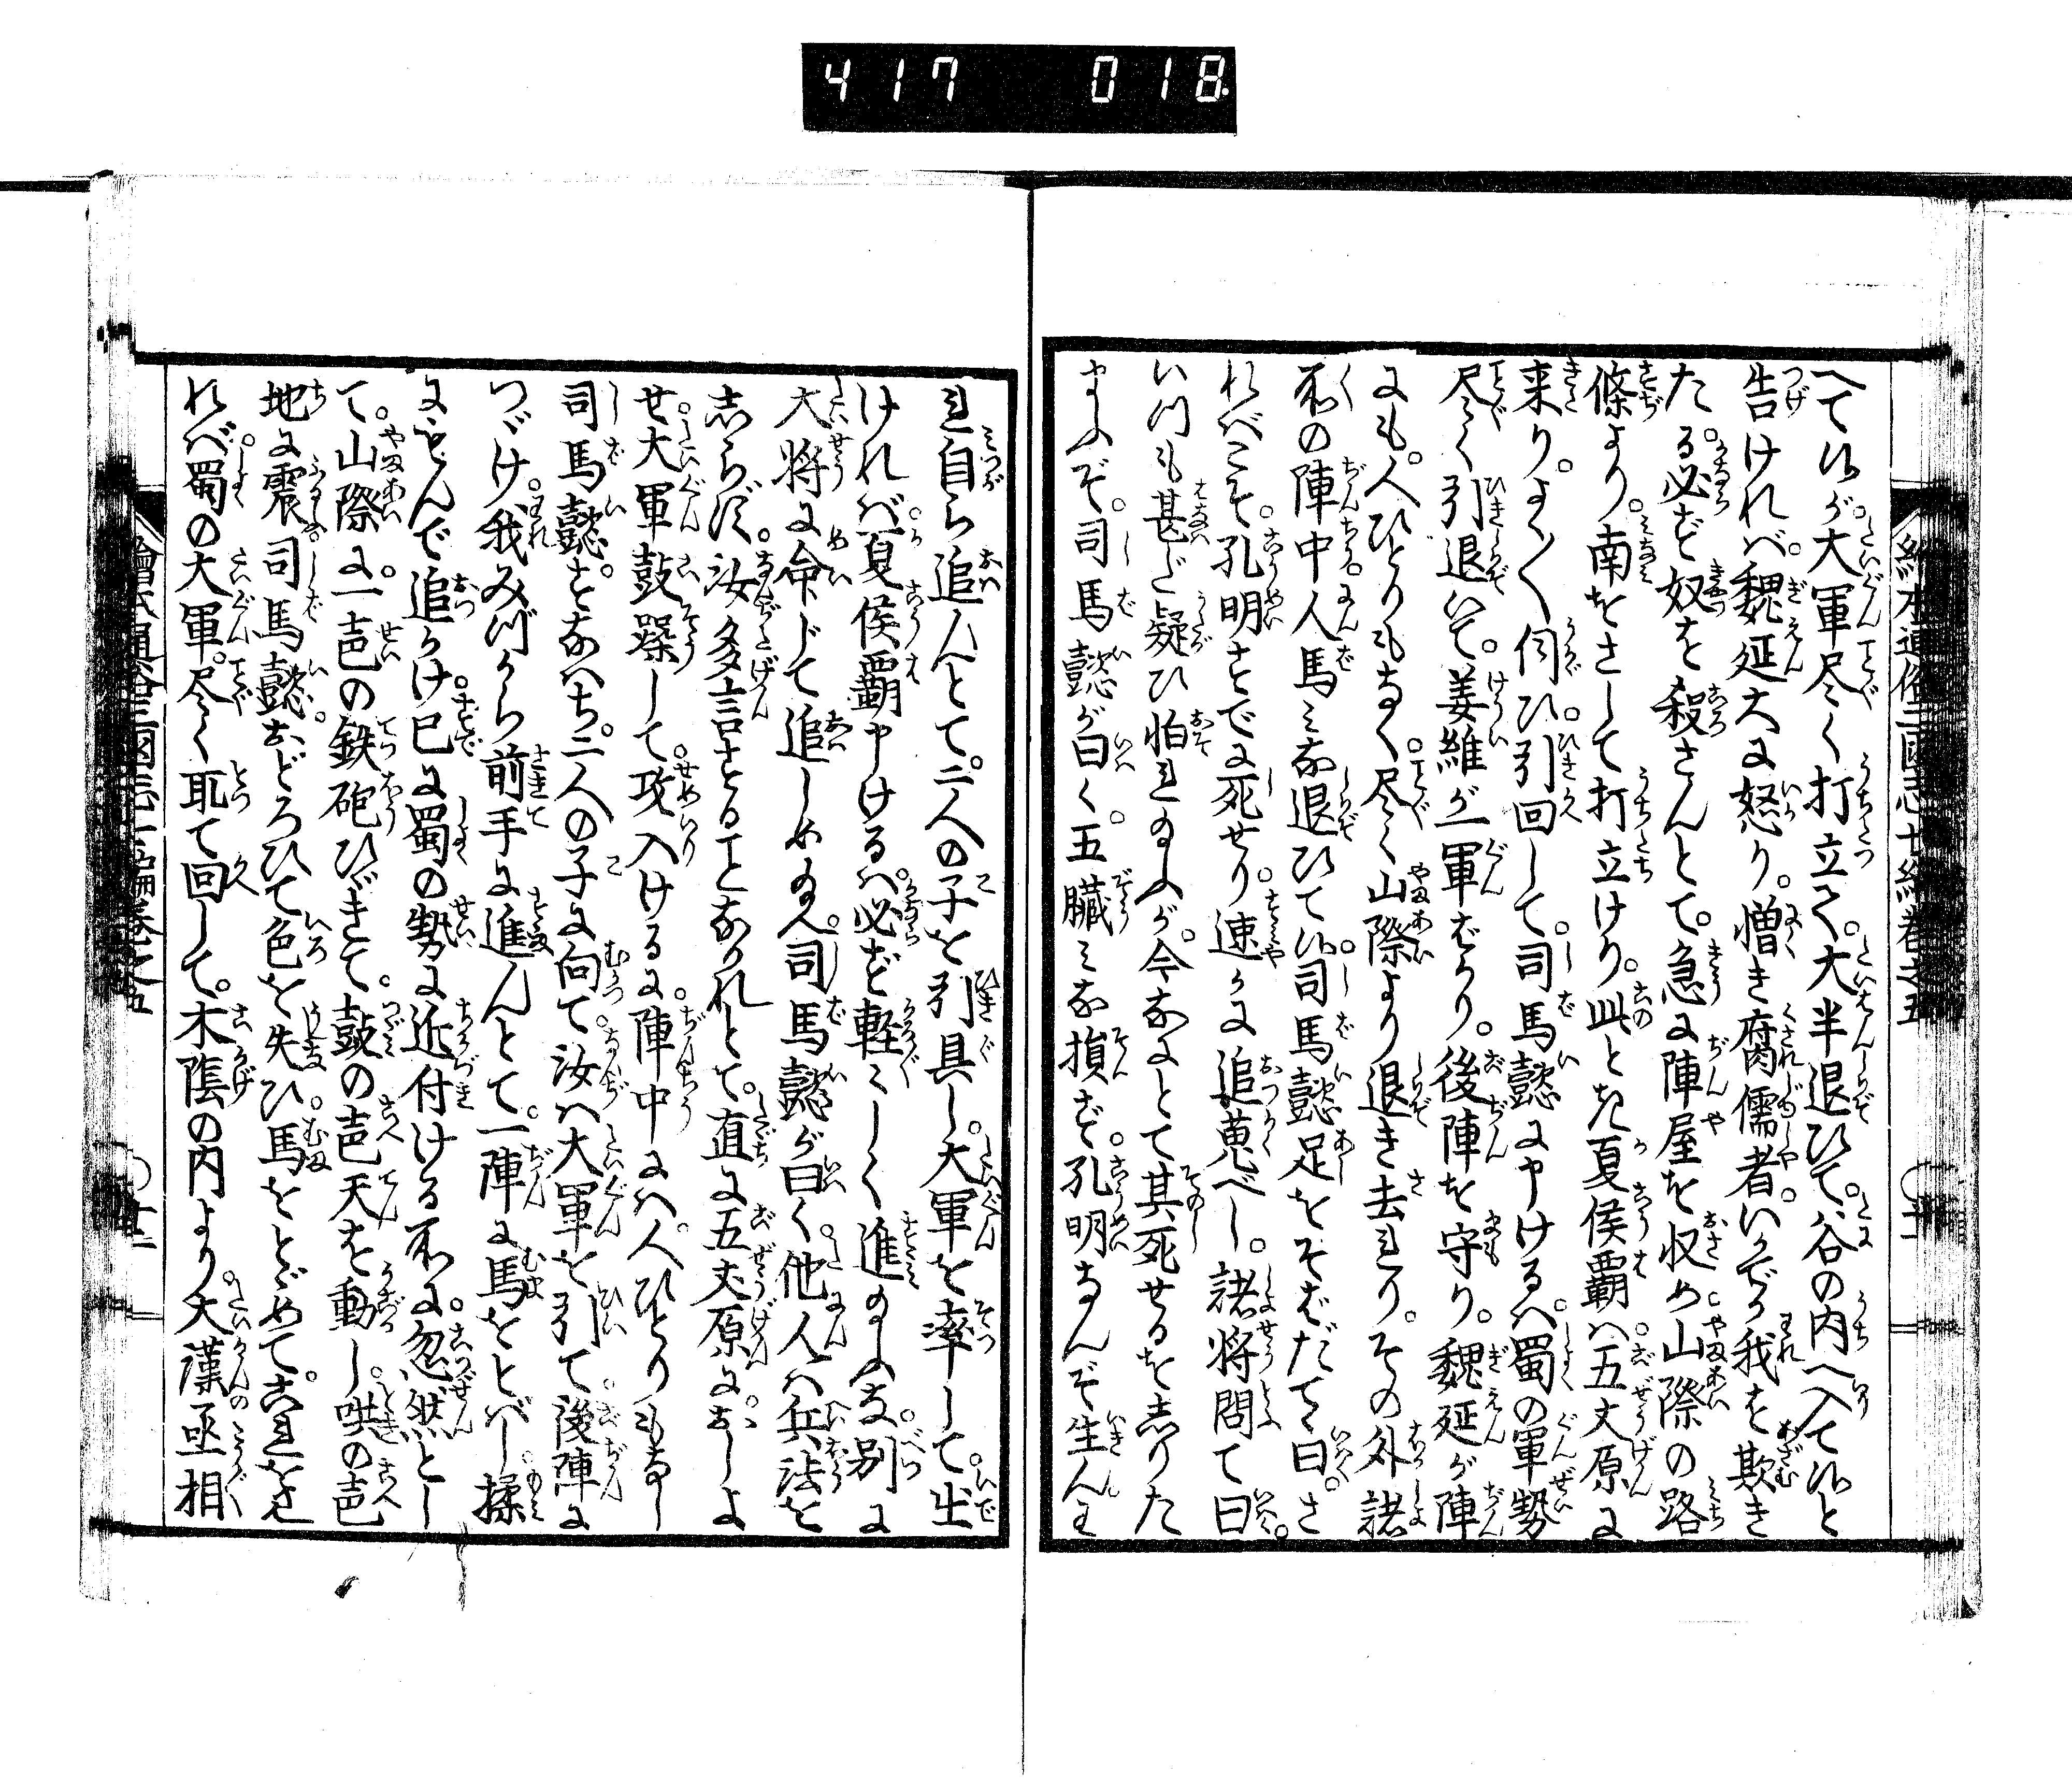 417 018
へて候が。大軍尽く打立て。大半退ひて。谷の内へ入て候と
告ければ。魏延大に怒り。憎き腐儒者。いかでか我を欺き
たる。必ず奴を殺さんとて。急に陣屋を収め。山際の路
條より。南をさして打立けり。此とき夏侯覇ハ。五丈原に
来り。よく〱伺ひ。引回して。司馬懿に申けるハ。蜀の軍勢
尽く引退いて。姜維が一軍ばかり。後陣を守り。魏延が陣
にも。人ひとりもなく。尽く山際より退き去れり。その外諸
所の陣中人馬みな退ひて候。司馬懿足をそばだてて曰。さ
ればこそ。孔明すでに死せり。速かに追蒐べし。諸将問て曰。
いつも甚だ疑ひ怕れ玉ふが。今なにとて其死せるを志りた
まふぞ。司馬懿が曰く。五臓みな損ず。孔明なんぞ生んや
と自ら追んとて。二人の子を引具し。大軍を率して。出
ければ。夏侯覇申けるハ。必ず軽〻しく進玉ふな。別に
大将に命じて追しめ玉へ。司馬懿が曰く。他人ハ兵法を
志らず。汝多言することなかれとて。直に五丈原に。おしよ
せ。大軍鼓譟して。攻入けるに。陣中にハ。人ひとりもなし
司馬懿。すなハち。二人の子に向て。汝ハ大軍を引て。後陣に
つゞけ。我みづから前手に進んとて。一陣に馬をとばし。揉
にもんで追かけ。已に蜀の勢に近付ける所に。忽然とし
て。山際に。一声の鉄砲ひゞきて。鼓の声天を動し。哄の声
地に震。司馬懿おどろひて色を失ひ。馬をとゞめて。これを
れば。蜀の大軍。尽く取て回して。木蔭の内より。大漢亟相